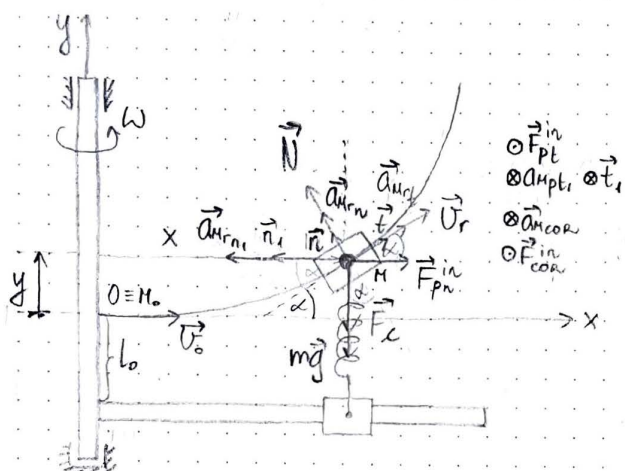 y
ω
N⃗
a⃗_Mrn
a⃗_Mr
t⃗
U⃗_r
⊙ F⃗^in_pt
⊗ a⃗_Mpt₁ ⊗ t⃗₁
⊗ a⃗_Mcor
⊙ F⃗^in_cor
x
a⃗_Mrn₁
n⃗₁
n⃗
α
α
M
F⃗^in_pn
y
O≡M₀
U⃗₀
α
α
F⃗_c
x
l₀
mg⃗